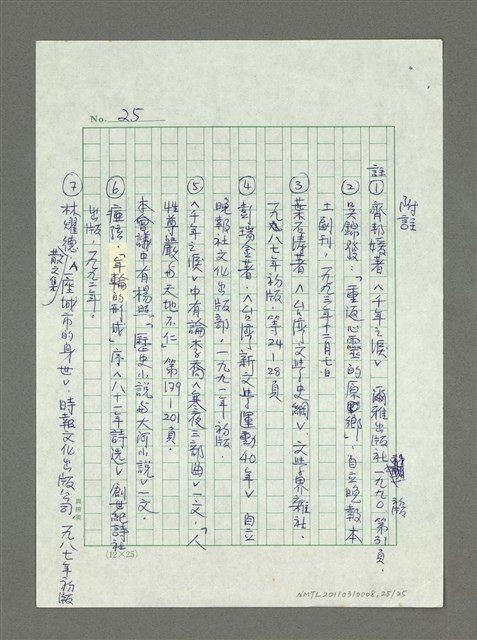 No. 25
附註
註① 齊邦媛著〈千年之淚〉 爾雅出版社 一九九○ 初版 第31頁.
② 吳錦發.「重返心靈的原鄉」, 自立晚報本
土副刊, 一九九三年十二月七日
③ 葉石濤著〈台湾文学史綱〉 文学界雜社.
一九八七年初版. 第24-28頁
④ 彭瑞金著.〈台湾新文学運動40年〉 自立
晚報社文化出版部, 一九九一年初版.
⑤〈千年之淚〉中有論李喬〈寒夜三部曲〉一文,「人
性尊嚴与天地不仁 第179-201頁.
本會議中有楊照「歷史小說与大河小說」一文.
⑥ 瘂弦.「年輪的形成」序〈八十一年詩选〉 創世紀詩社
出版, 一九九二年.
⑦ 林燿德.散文集〈一座城市的身世〉. 時報文化出版公司. 一九八七年初版
(12×25)
NMTL20110310008,25/25